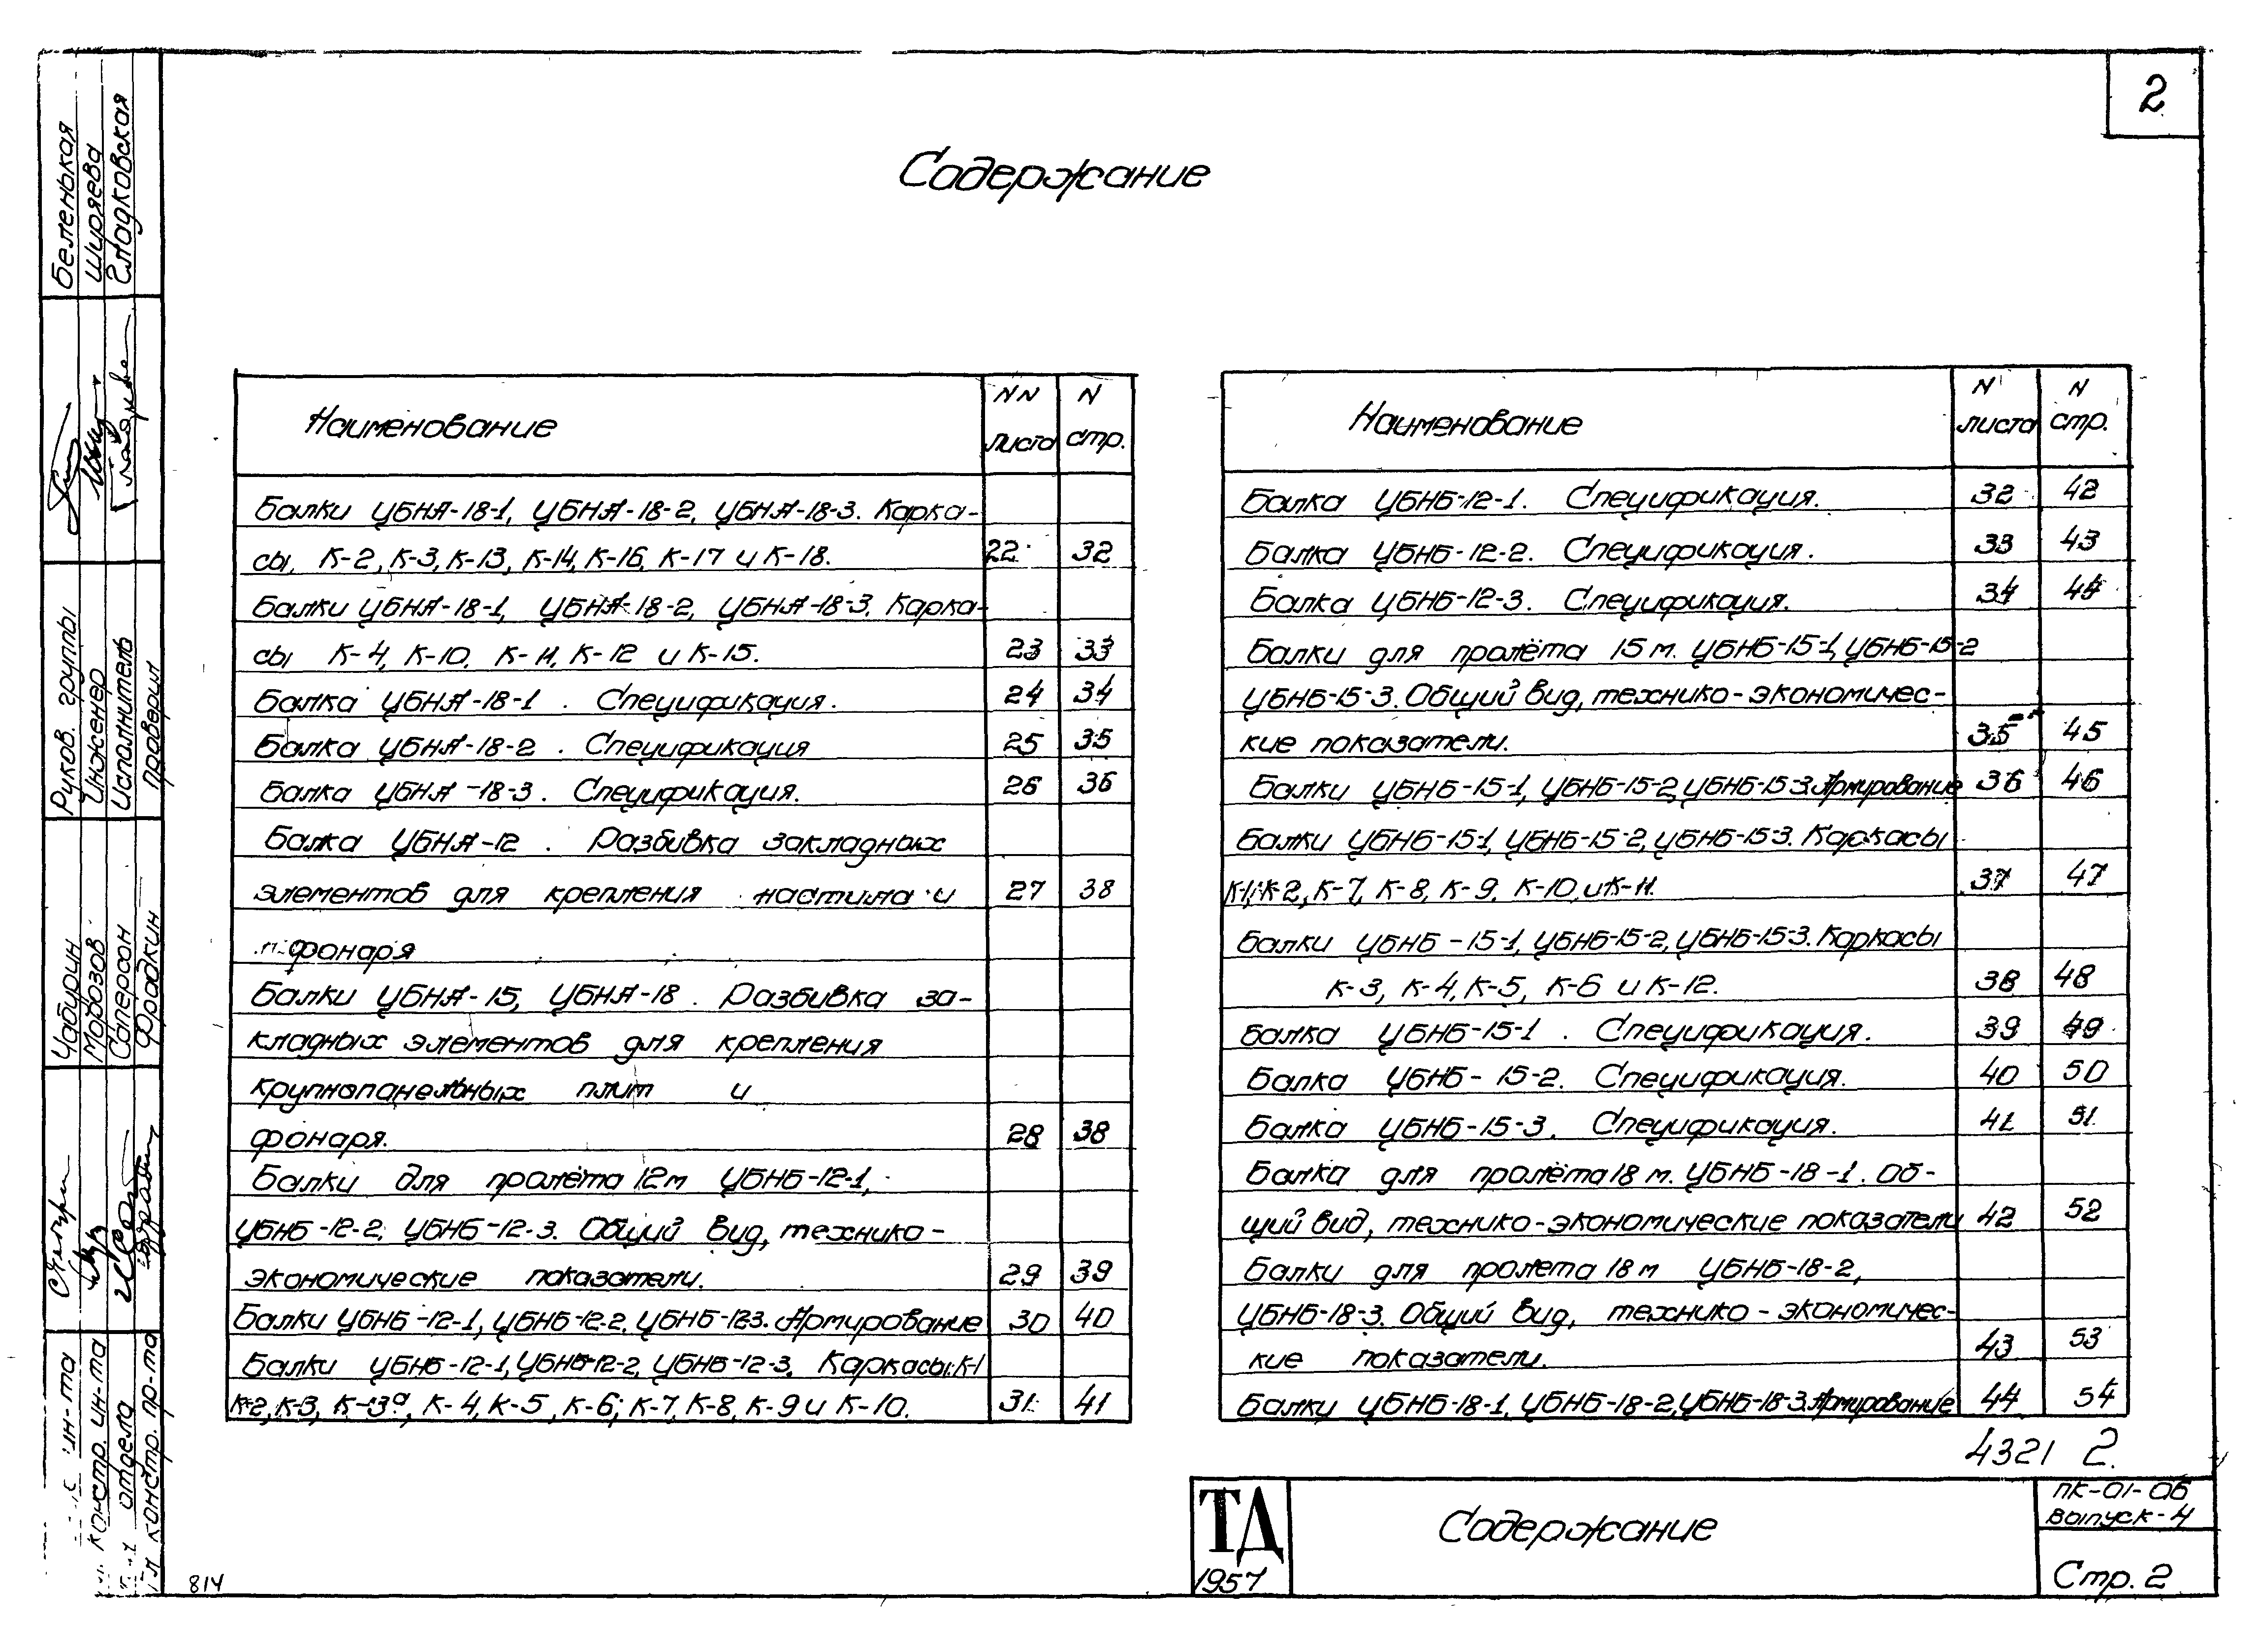 2
Содержание
Наименование NN листа N стр.
Балки УБНА-18-1, УБНА-18-2, УБНА-18-3. Карка-
сы, К-2, К-3, К-13, К-14, К-16, К-17 и К-18. 22 32
Балки УБНА-18-1, УБНА-18-2, УБНА-18-3. Карка-
сы К-4, К-10, К-11, К-12 и К-15. 23 33
Балка УБНА-18-1 . Спецификация. 24 34
Балка УБНА-18-2 . Спецификация 25 35
Балка УБНА-18-3. Спецификация. 26 36
Балка УБНА-12 . Разбивка закладных
элементов для крепления настила и 27 38
фонаря
Балки УБНА-15, УБНА-18 . Разбивка за-
кладных элементов для крепления
крупнопанельных плит и
фонаря. 28 38
Балки для пролёта 12м УБНБ-12-1,
УБНБ-12-2, УБНБ-12-3. Общий вид, технико-
экономические показатели. 29 39
Балки УБНБ-12-1, УБНБ-12-2, УБНБ-12-3. Армирование 30 40
Балки УБНБ-12-1, УБНБ-12-2, УБНБ-12-3. Каркасы: К-1
К-2, К-3, К-3а, К-4, К-5, К-6, К-7, К-8, К-9 и К-10. 31 41
Наименование N листа N стр.
Балка УБНБ-12-1. Спецификация. 32 42
Балка УБНБ-12-2. Спецификация. 33 43
Балка УБНБ-12-3. Спецификация. 34 44
Балки для пролёта 15 м. УБНБ-15-1, УБНБ-15-2
УБНБ-15-3. Общий вид, технико-экономичес-
кие показатели. 35 45
Балки УБНБ-15-1, УБНБ-15-2, УБНБ-15-3. Армирование 36 46
Балки УБНБ-15-1, УБНБ-15-2, УБНБ-15-3. Каркасы
К-1, К-2, К-7, К-8, К-9, К-10, и К-11. 37 47
Балки УБНБ-15-1, УБНБ-15-2, УБНБ-15-3. Каркасы
К-3, К-4, К-5, К-6 и К-12. 38 48
Балка УБНБ-15-1 . Спецификация. 39 49
Балка УБНБ-15-2. Спецификация. 40 50
Балка УБНБ-15-3. Спецификация. 41 51
Балка для пролёта 18 м. УБНБ-18-1. Об-
щий вид, технико-экономические показатели 42 52
Балки для пролета 18 м УБНБ-18-2,
УБНБ-18-3. Общий вид, технико-экономичес-
кие показатели. 43 53
Балки УБНБ-18-1, УБНБ-18-2, УБНБ-18-3. Армирование 44 54
4321 2
ТД
1957
Содержание
ПК-01-06
Выпуск-4
Стр. 2
814
Беленькая
Ширяева
Гладковская
Руков. группы
Инженер
Исполнитель
Проверил
Чабирин
Морозов
Саперсон
Фрадкин
ин-та
констр. ин-та
отдела
констр. пр-та